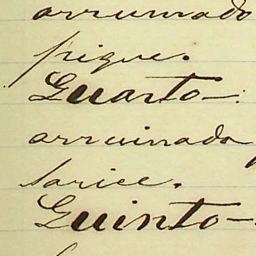 arruinado
pique.
Quarto—:
arruinado
tarice.
Quinto—